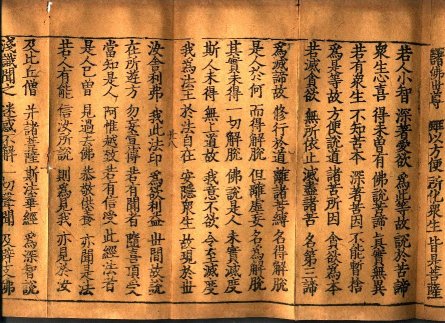 諸佛世尊 雖以方便 所化衆生 皆是菩薩
若人小智 深著愛欲 爲此等故 說於苦諦
衆生心喜 得未曾有 佛說苦諦 真實無異
若有衆生 不知苦本 深著苦因 不能暫捨
爲是等故 方便說道 諸苦所因 貪欲爲本
若滅貪欲 無所依止 滅盡諸苦 名第三諦
爲滅諦故 修行於道 離諸苦縛 名得解脫
是人於何 而得解脫 但離虛妄 名爲解脫
其實未得 一切解脫 佛說是人 未實滅度
斯人未得 無上道故 我意不欲 令至滅度
我爲法王 於法自在 安隱衆生 故現於世
汝舍利弗 我此法印 爲欲利益 世間故說
在所遊方 勿妄宣傳 若有聞者 隨喜頂受
當知是人 阿惟越致 若有信受 此經法者
是人已曾 見過去佛 恭敬供養 亦聞是法
若人有能 信汝所說 則爲見我 亦見於汝
及比丘僧 并諸菩薩 斯法華經 爲深智說
淺識聞之 迷惑不解 一切聲聞 及辟支佛